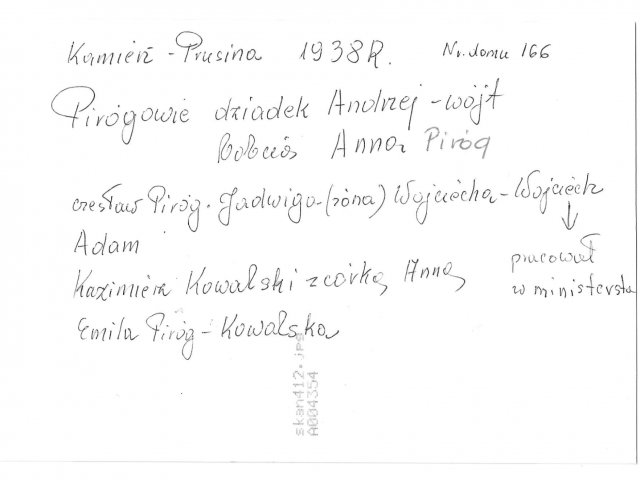 Kamień - Prusina 1938R. Nr. domu 166
Pirógowie dziadek Andrzej - wójt
babcia Anna Piróg
Czesław Piróg. Jadwiga - (żona) Wojciecha - Wojciech
Adam
pracował
Kazimierz Kowalski z córką Anną
w ministerstw
Emila Piróg - Kowalska
skan412.jpg
A004354